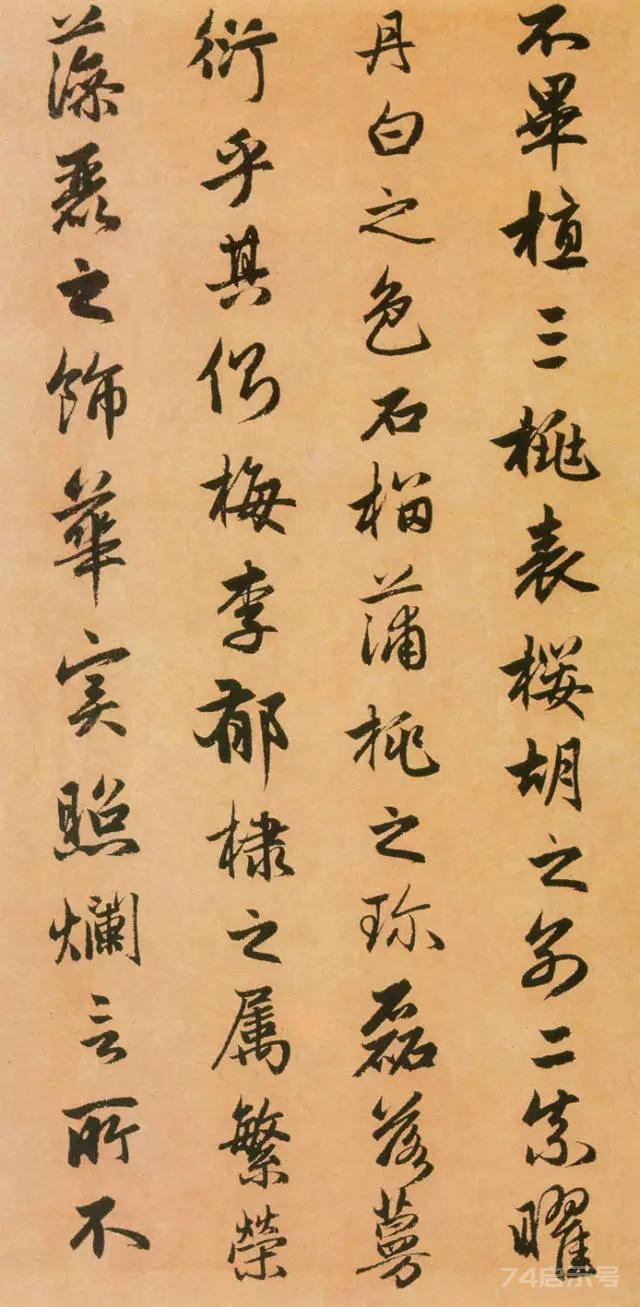 不畢植三桃表櫻胡之别二柰曜
丹白之色石榴蒲桃之珎磊落蔓
衍乎其側梅李郁棣之属繁榮
藻麗之飾華实照爛言所不
74启示号